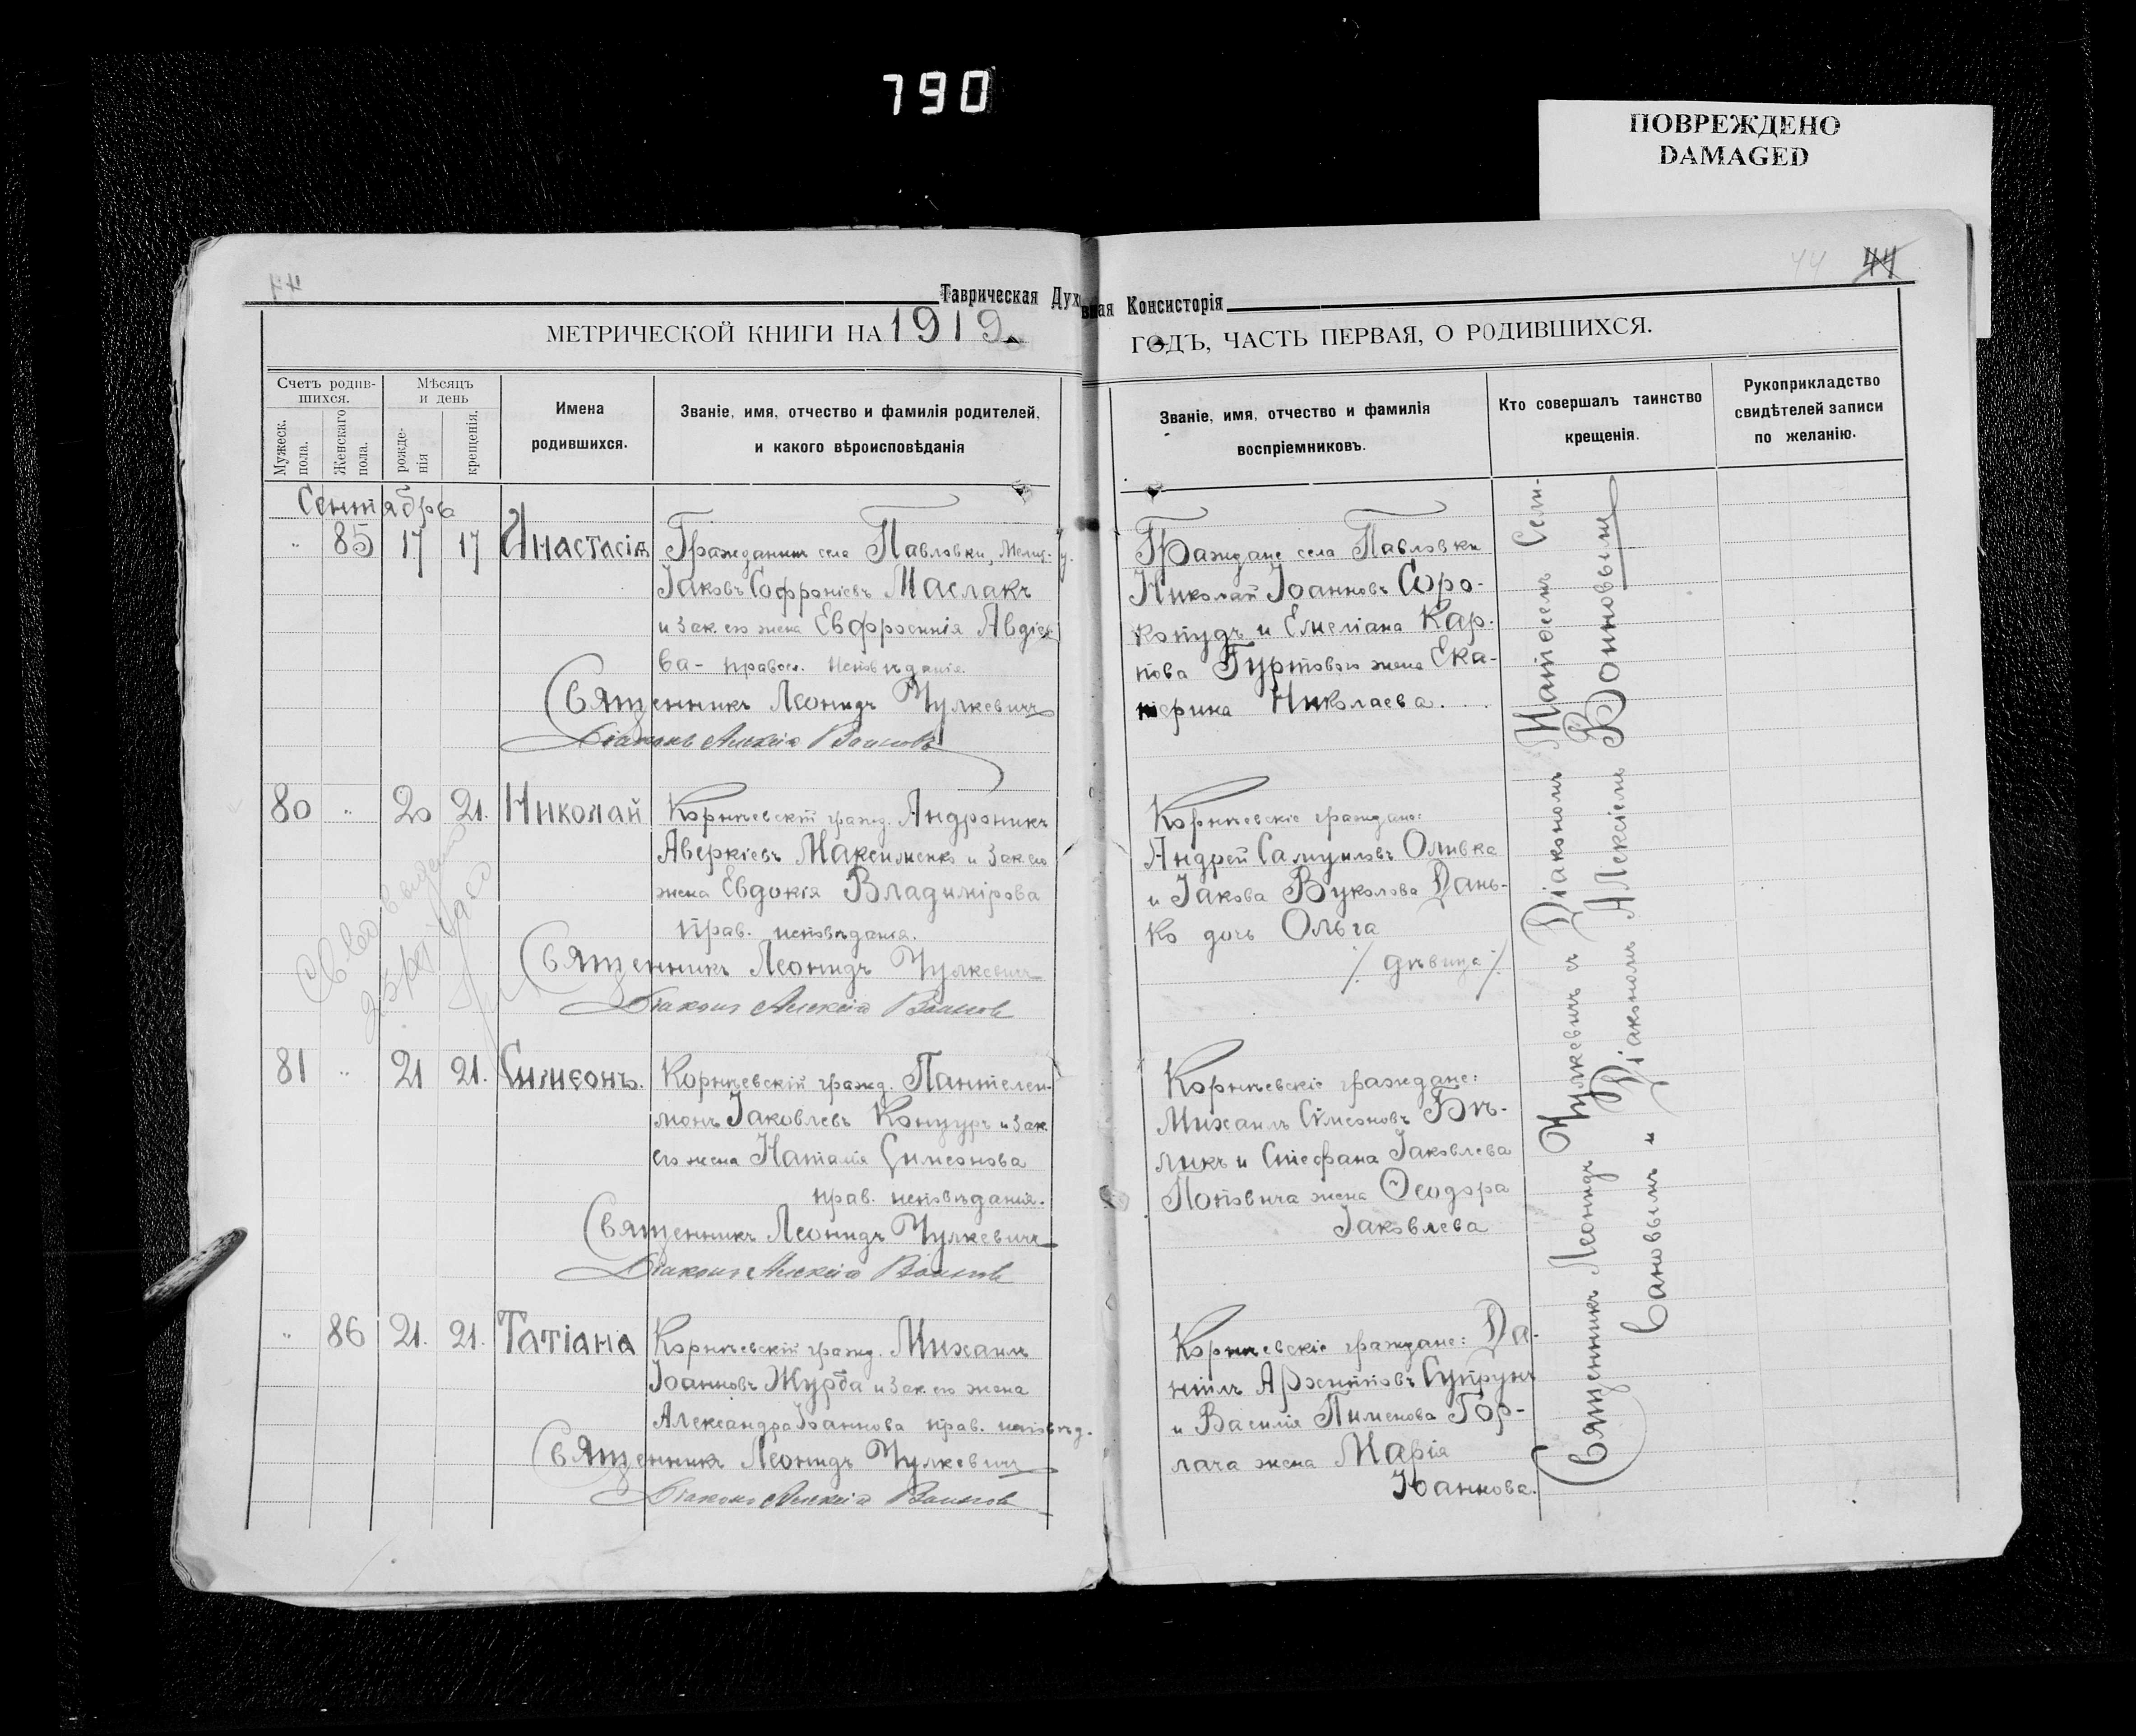 790
ПОВРЕЖДЕНО
DAMAGED
44 44
Таврическая Духовная Консисторія
МЕТРИЧЕСКОЙ КНИГИ НА 1919 ГОДЪ, ЧАСТЬ ПЕРВАЯ, О РОДИВШИХСЯ.
Счетъ родив-
шихся.
Мужеск.
пола.
Женскаго
пола.
Мѣсяцъ
и день
рожде-
нія
крещенія.
Имена
родившихся.
Званіе, имя, отчество и фамилія родителей,
и какого вѣроисповѣданія
Званіе, имя, отчество и фамилія
воспріемниковъ.
Кто совершалъ таинство
крещенія.
Рукоприкладство
свидѣтелей записи
по желанію.
Сентября
" 85 17 17 Анастасія
Гражданинъ села Павловки, Мелит. у.
Іаковъ Софроніевъ Маслакъ
и зак. его жена Евфросинія Авдіе-
ва - правосл. исповѣданія.
Священникъ Леонидъ Чулкевичъ
Діаконъ Алексій Воиновъ
Граждане села Павловки
Николай Іоанновъ Соро-
копудъ и Емеліана Кар-
пова Гуртового жена Ека-
терина Николаева.
80 " 20 21. Николай
Корнѣевскій гражд. Андроникъ
Аверкіевъ Максименко и зак. его
жена Евдокія Владимірова
прав. исповѣданія.
Священникъ Леонидъ Чулкевичъ
Діаконъ Алексій Воиновъ
Корнѣевскіе граждане:
Андрей Самуиловъ Оливка
и Іакова Вуколова Дань-
ко дочь Ольга
/. дѣвица ./
81 " 21 21. Симеонъ.
Корнѣевскій гражд. Пантелеи-
монъ Іаковлевъ Концуръ и зак.
его жена Наталія Симеонова
прав. исповѣданія.
Священникъ Леонидъ Чулкевичъ
Діаконъ Алексій Воиновъ
Корнѣевскіе граждане:
Михаилъ Симеоновъ Бѣ-
ликъ и Стефана Іаковлева
Поповича жена Ѳеодора
Іаковлева
" 86 21. 21. Татіана
Корнѣевскій гражд. Михаилъ
Іоанновъ Журба и зак. его жена
Александра Іоаннова прав. исповѣд.
Священникъ Леонидъ Чулкевичъ
Діаконъ Алексій Воиновъ
Корнѣевскіе граждане: Да-
ніилъ Архиповъ Супрунъ
и Василія Пименова Гор-
лача жена Марія
Іоаннова.
Священникъ Леонидъ Чулкевичъ съ Діакономъ Матѳеемъ Сели-
вановымъ и Діакономъ Алексіемъ Воиновымъ